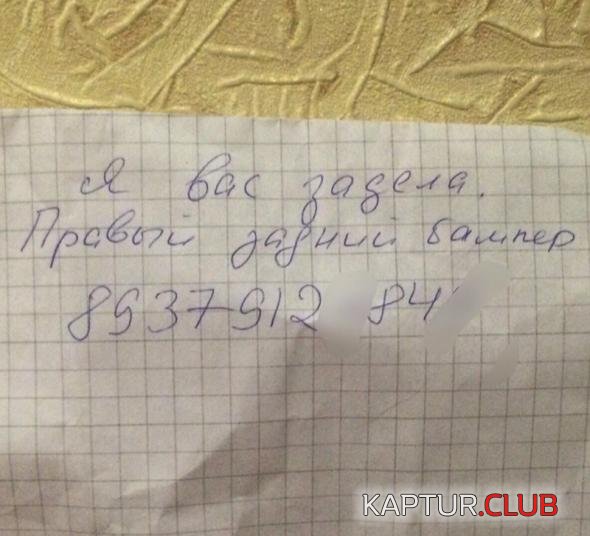 Я вас задела.
Правый задний бампер
8937912 84
KAPTUR.CLUB